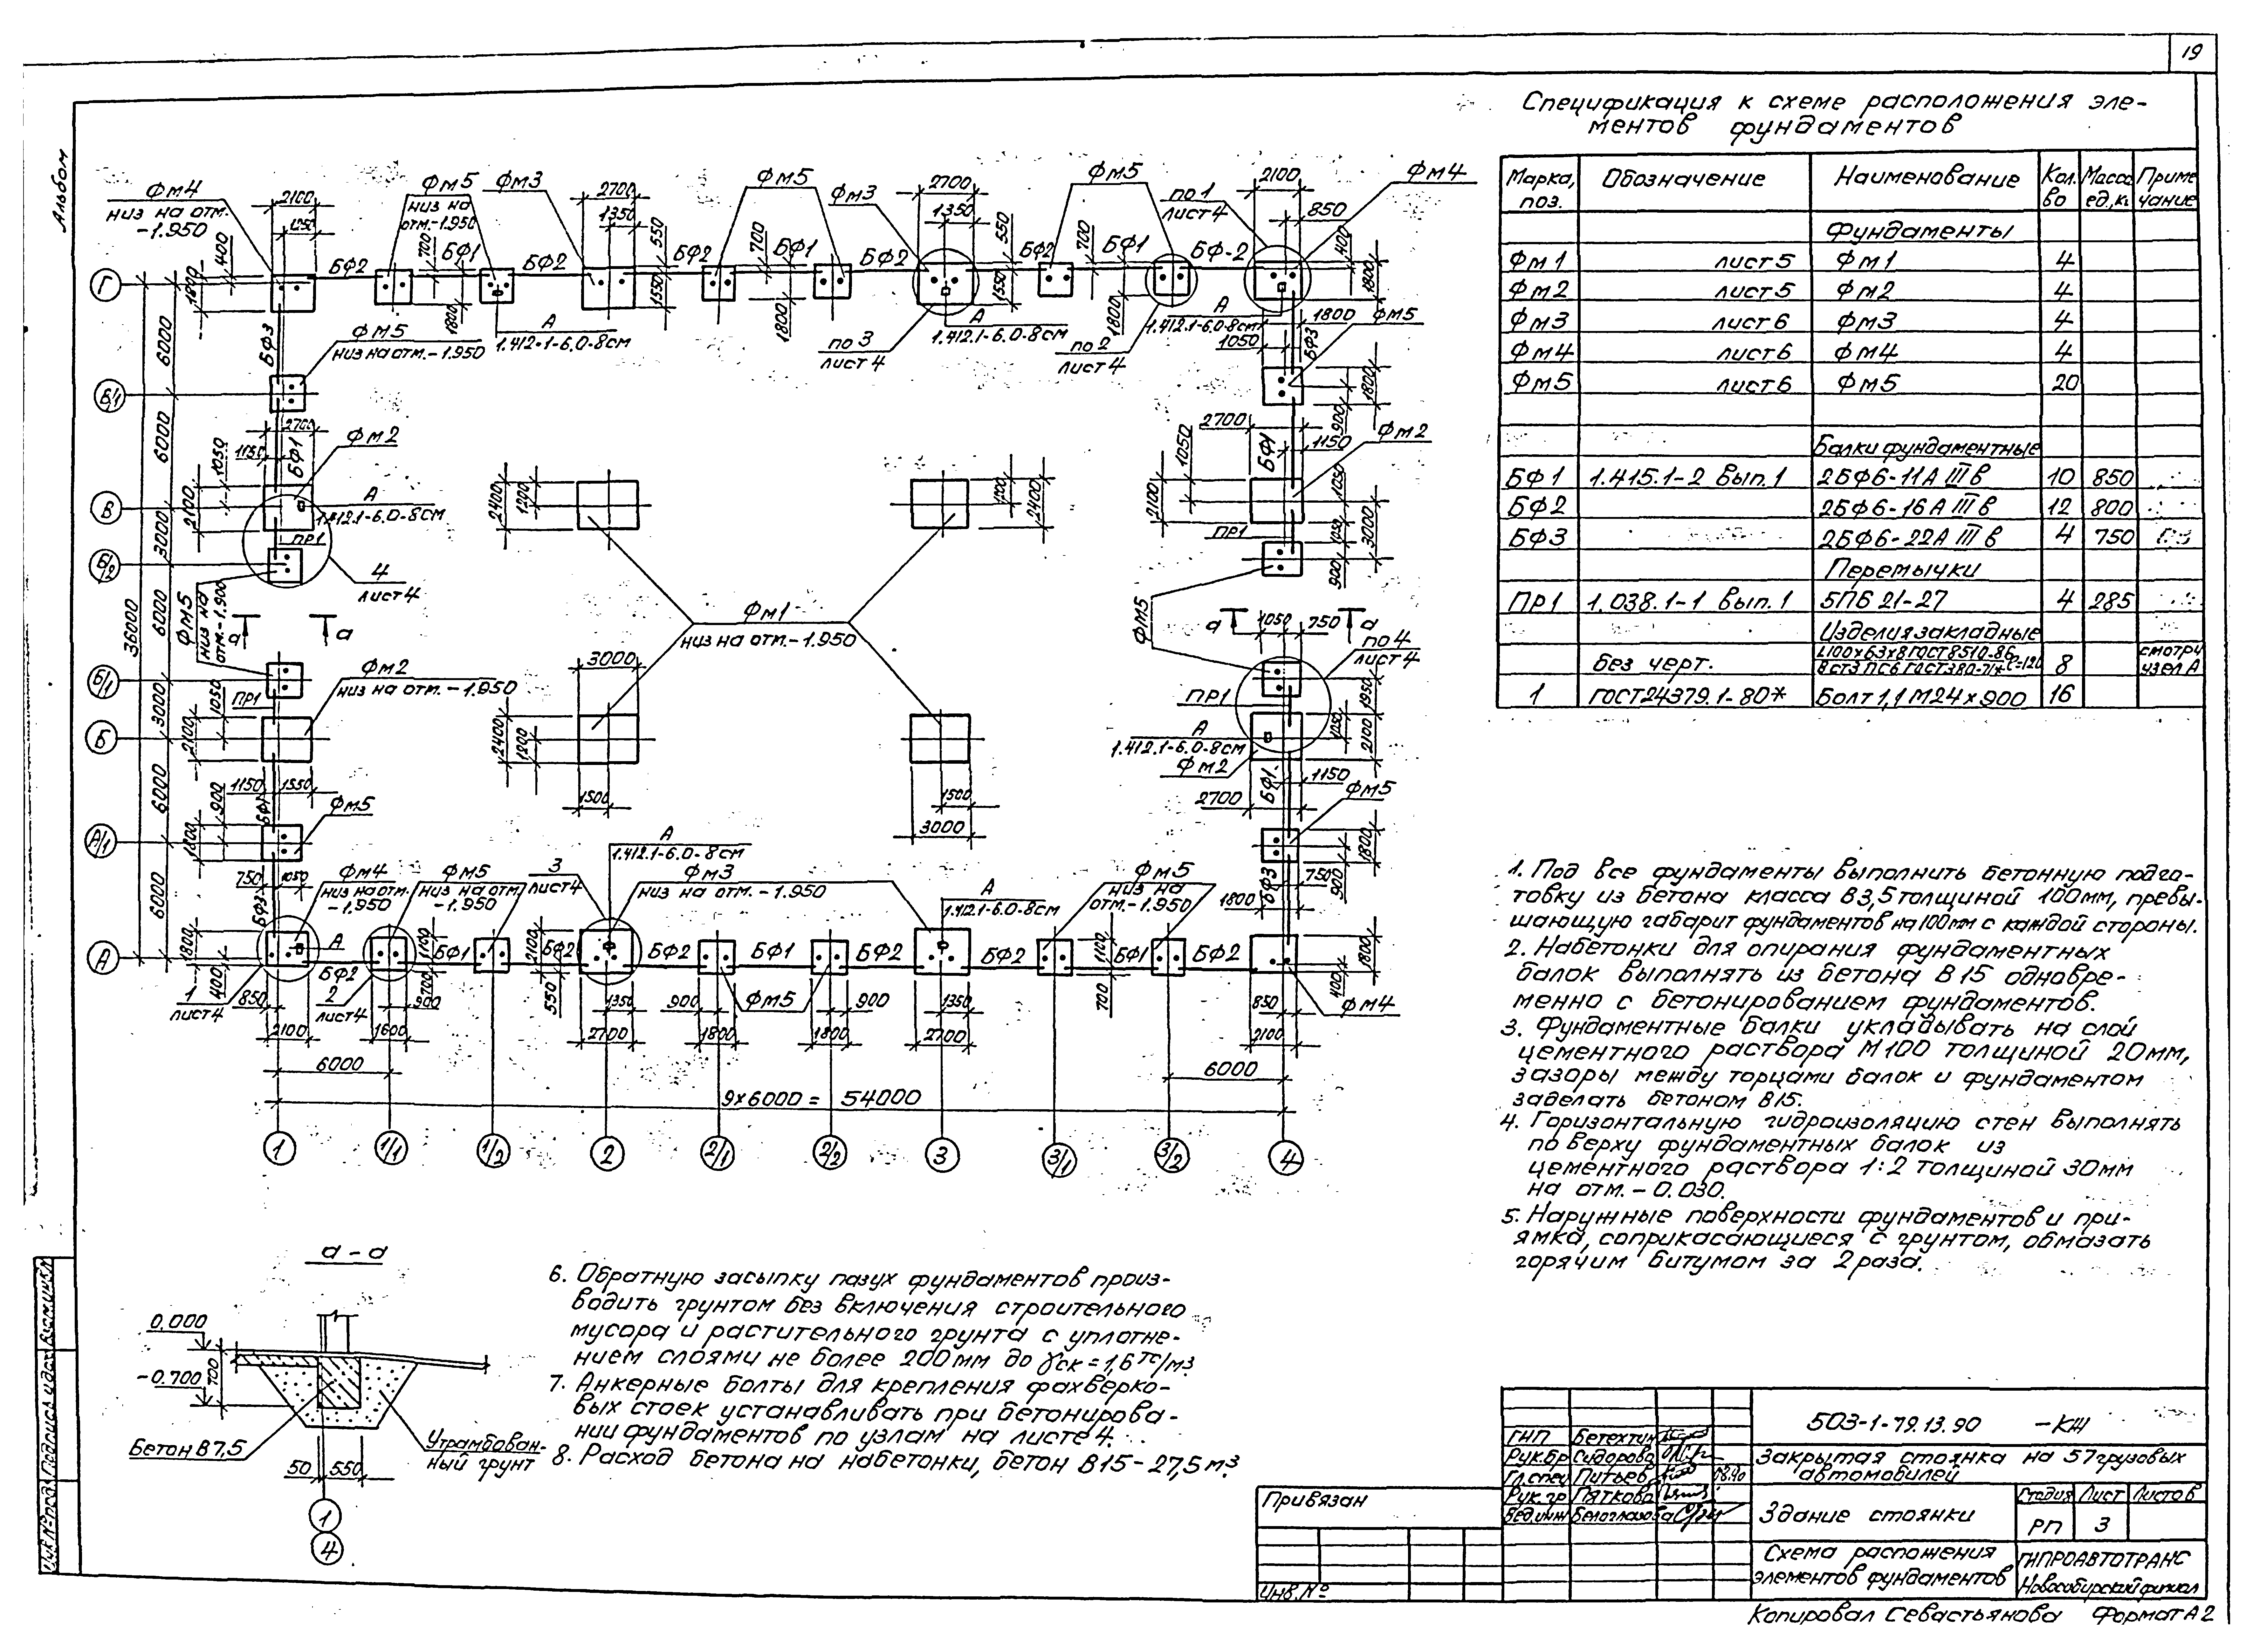 19
Альбом
Спецификация к схеме расположения эле-
ментов фундаментов
Марка, поз. Обозначение Наименование Кол. во Масса ед,кг Приме чание
Фундаменты
Фм1 лист5 Фм1 4
Фм2 лист5 Фм2 4
Фм3 лист6 Фм3 4
Фм4 лист6 Фм4 4
Фм5 лист6 Фм5 20
Балки фундаментные
БФ1 1.415.1-2 Вып.1 2БФ6-11АIIIв 10 850
БФ2 2БФ6-16АIIIв 12 800
БФ3 2БФ6-22АIIIв 4 750
Перемычки
ПР1 1.038.1-1 вып.1 5ПБ 21-27 4 285
Изделия закладные
без черт. L100х63х8 ГОСТ8510-86 8 смотри
ВСт3 ПС6 ГОСТ380-71* ℓ=120 узел А
1 ГОСТ24379.1-80* Болт 1,1 М24х900 16
Фм4
низ на отм.
-1.950
2100
1050
Фм5
низ на
отм.-1.950
Фм3
2700
1350
Фм5
Фм3
2700
1350
Фм5
по 1
лист 4
2100
850
Фм4
400
1800
БФ2
700
БФ1
1800
БФ2
550
1550
БФ2
700
БФ1
1800
БФ2
550
1550
БФ2
700
БФ1
1800
БФ-2
400
1800
А
1.412.1-6.0-8см
по 3
лист 4
А
1.412.1-6.0-8см
по 2
лист 4
А
1.412.1-6.0-8см
Г
6000
БФ3
Фм5
низ на отм.-1.950
1800
1050
БФ3
Фм5
1800
900
Б/4
6000
1150
2700
БФ1
1050
2100
Фм2
А
1.412.1-6.0-8см
2400
1200
1200
2400
2700
1050
БФ1
1150
Фм2
2100
1050
В
3000
ПР1
ПР1
1050
3000
900
Б/2
4
лист 4
36000
6000
Фм5
низ на
отм.-1.900
а
а
Фм1
низ на отм.-1.950
Фм5
а
1050
750
а
по 4
лист 4
3000
Фм2
низ на отм.-1.950
Б/1
3000
ПР1
1050
2100
2400
1200
ПР1
А
1.412.1-6.0-8см
Фм2
1950
1050
2100
Б
6000
1150
1550
900
БФ1
Фм5
1800
1500
1500
3000
1150
2700
БФ1
Фм5
1800
900
А/1
6000
750
1050
БФ3
Фм4
низ на отм.
-1.950
Фм5
низ на отм
-1.950
3
лист 4
А
1.412.1-6.0-8см
Фм3
низ на отм.-1.950
А
1.412.1-6.0-8см
Фм5
низ на
отм.-1.950
1800
750
БФ3
А
1800
400
А
БФ2
1100
700
БФ1
2100
550
БФ2
БФ2
БФ1
БФ2
БФ2
1100
700
БФ1
БФ2
1800
400
Фм4
1
лист 4
850
2
лист 4
900
1350
900
Фм5
900
1350
850
2100
1600
2700
1800
1800
2700
2100
6000
6000
9х6000= 54000
1
1/1
1/2
2
2/1
2/2
3
3/1
3/2
4
1. Под все фундаменты выполнить бетонную подго-
товку из бетона класса В3,5 толщиной 100мм, превы-
шающую габарит фундаментов на 100мм с каждой стороны.
2. Набетонки для опирания фундаментных
балок выполнять из бетона В15 одновре-
менно с бетонированием фундаментов.
3. Фундаментные балки укладывать на слой
цементного раствора М100 толщиной 20мм,
зазоры между торцами балок и фундаментом
заделать бетоном В15.
4. Горизонтальную гидроизоляцию стен выполнять
по верху фундаментных балок из
цементного раствора 1:2 толщиной 30мм
на отм.-0.030.
5. Наружные поверхности фундаментов и при-
ямка, соприкасающиеся с грунтом, обмазать
горячим битумом за 2 раза.
а - а
0.000
-0.700
700
Бетон В7,5
Утрамбован-
ный грунт
50
550
1
4
6. Обратную засыпку пазух фундаментов произ-
водить грунтом без включения строительного
мусора и растительного грунта с уплотне-
нием слоями не более 200мм до γск=1,6тс/м³
7. Анкерные болты для крепления фахверко-
вых стоек устанавливать при бетонирова-
нии фундаментов по узлам на листе 4.
8. Расход бетона на набетонки, бетон В15-27,5м³
Привязан
Инв.№
503-1-79.13.90 -КЖ
ГИП Бетехтин
Рук.бр Сидорова
Гл.спец Питьев 08.90
Рук.гр Пяткова
Вед.инж Белоглазова
Закрытая стоянка на 57 грузовых
автомобилей
Здание стоянки
Стадия Лист Листов
РП 3
Схема расположения
элементов фундаментов
ГИПРОАВТОТРАНС
Новосибирский филиал
Инв.№ подл. Подпись и дата Взам.инв.№
Копировал Севастьянова Формат А2